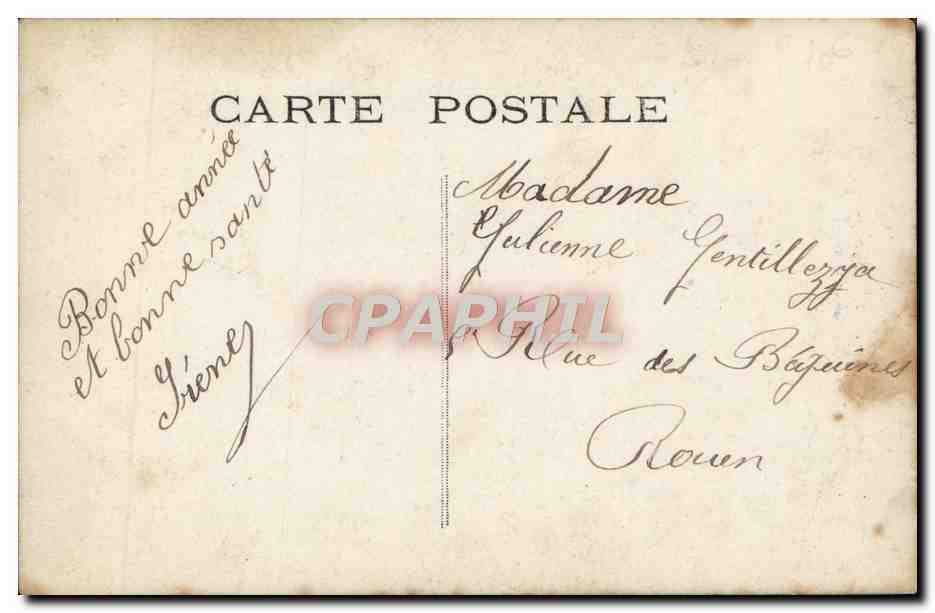 CARTE POSTALE
Bonne année
et bonne santé
Irène
Madame
Julienne Gentillezza
Rue des Béguines
Rouen
CPAPHIL